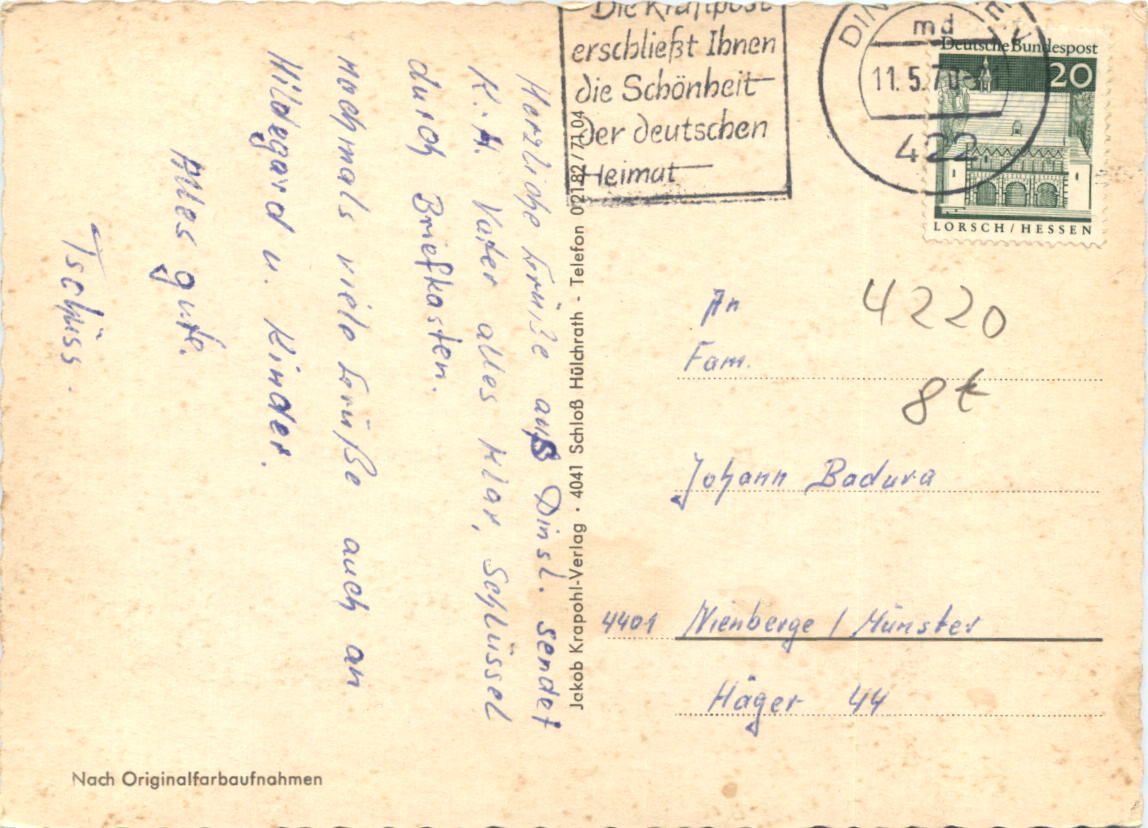 Herzliche Grüße auß Dinsl. sendet
K.H. Vater alles klar, Schlüssel
durch Briefkasten.
Nochmals viele Grüße auch an
Hildegard u. Kinder.
Alles gute.
Tschüss.
Nach Originalfarbaufnahmen
Jakob Krapohl-Verlag · 4041 Schloß Hülchrath - Telefon 02182/7104
Die Kraftpost
erschließt Ihnen
die Schönheit
der deutschen
Heimat
md
11.5.70
422
Deutsche Bundespost
20
LORSCH/HESSEN
4220
8t
An
Fam.
Johann Badura
4401 Nienberge / Münster
Häger 44